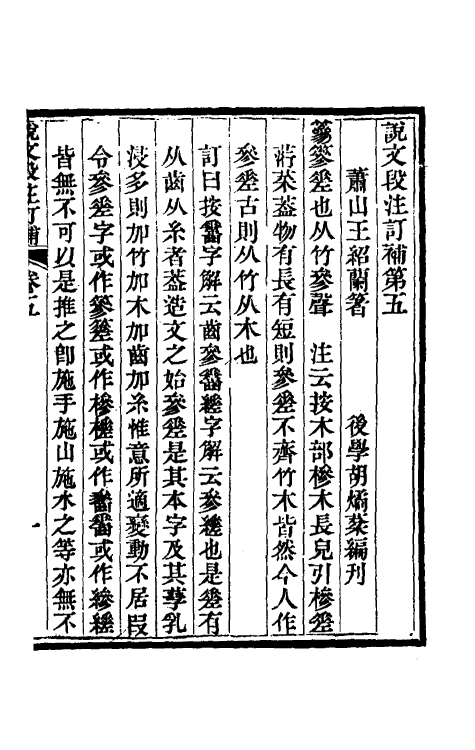 說文段注訂補第五
蕭山王紹蘭箸　後學胡燏棻編刊
篸篸差也从竹參聲　注云按木部槮木長皃引槮差
荇菜蓋物有長有短則參差不齊竹木皆然今人作
參差古則从竹从木也
訂曰按齹字解云齒參齹縒字解云參縒也是差有
从齒从糸者蓋造文之始參差是其本字及其孳乳
浸多則加竹加木加齒加糸惟意所適變動不居叚
令參差字或作篸䇎或作槮槎或作齹或作縿縒
皆無不可以是推之卽施手施山施水之等亦無不
說文段注訂補　卷五　一